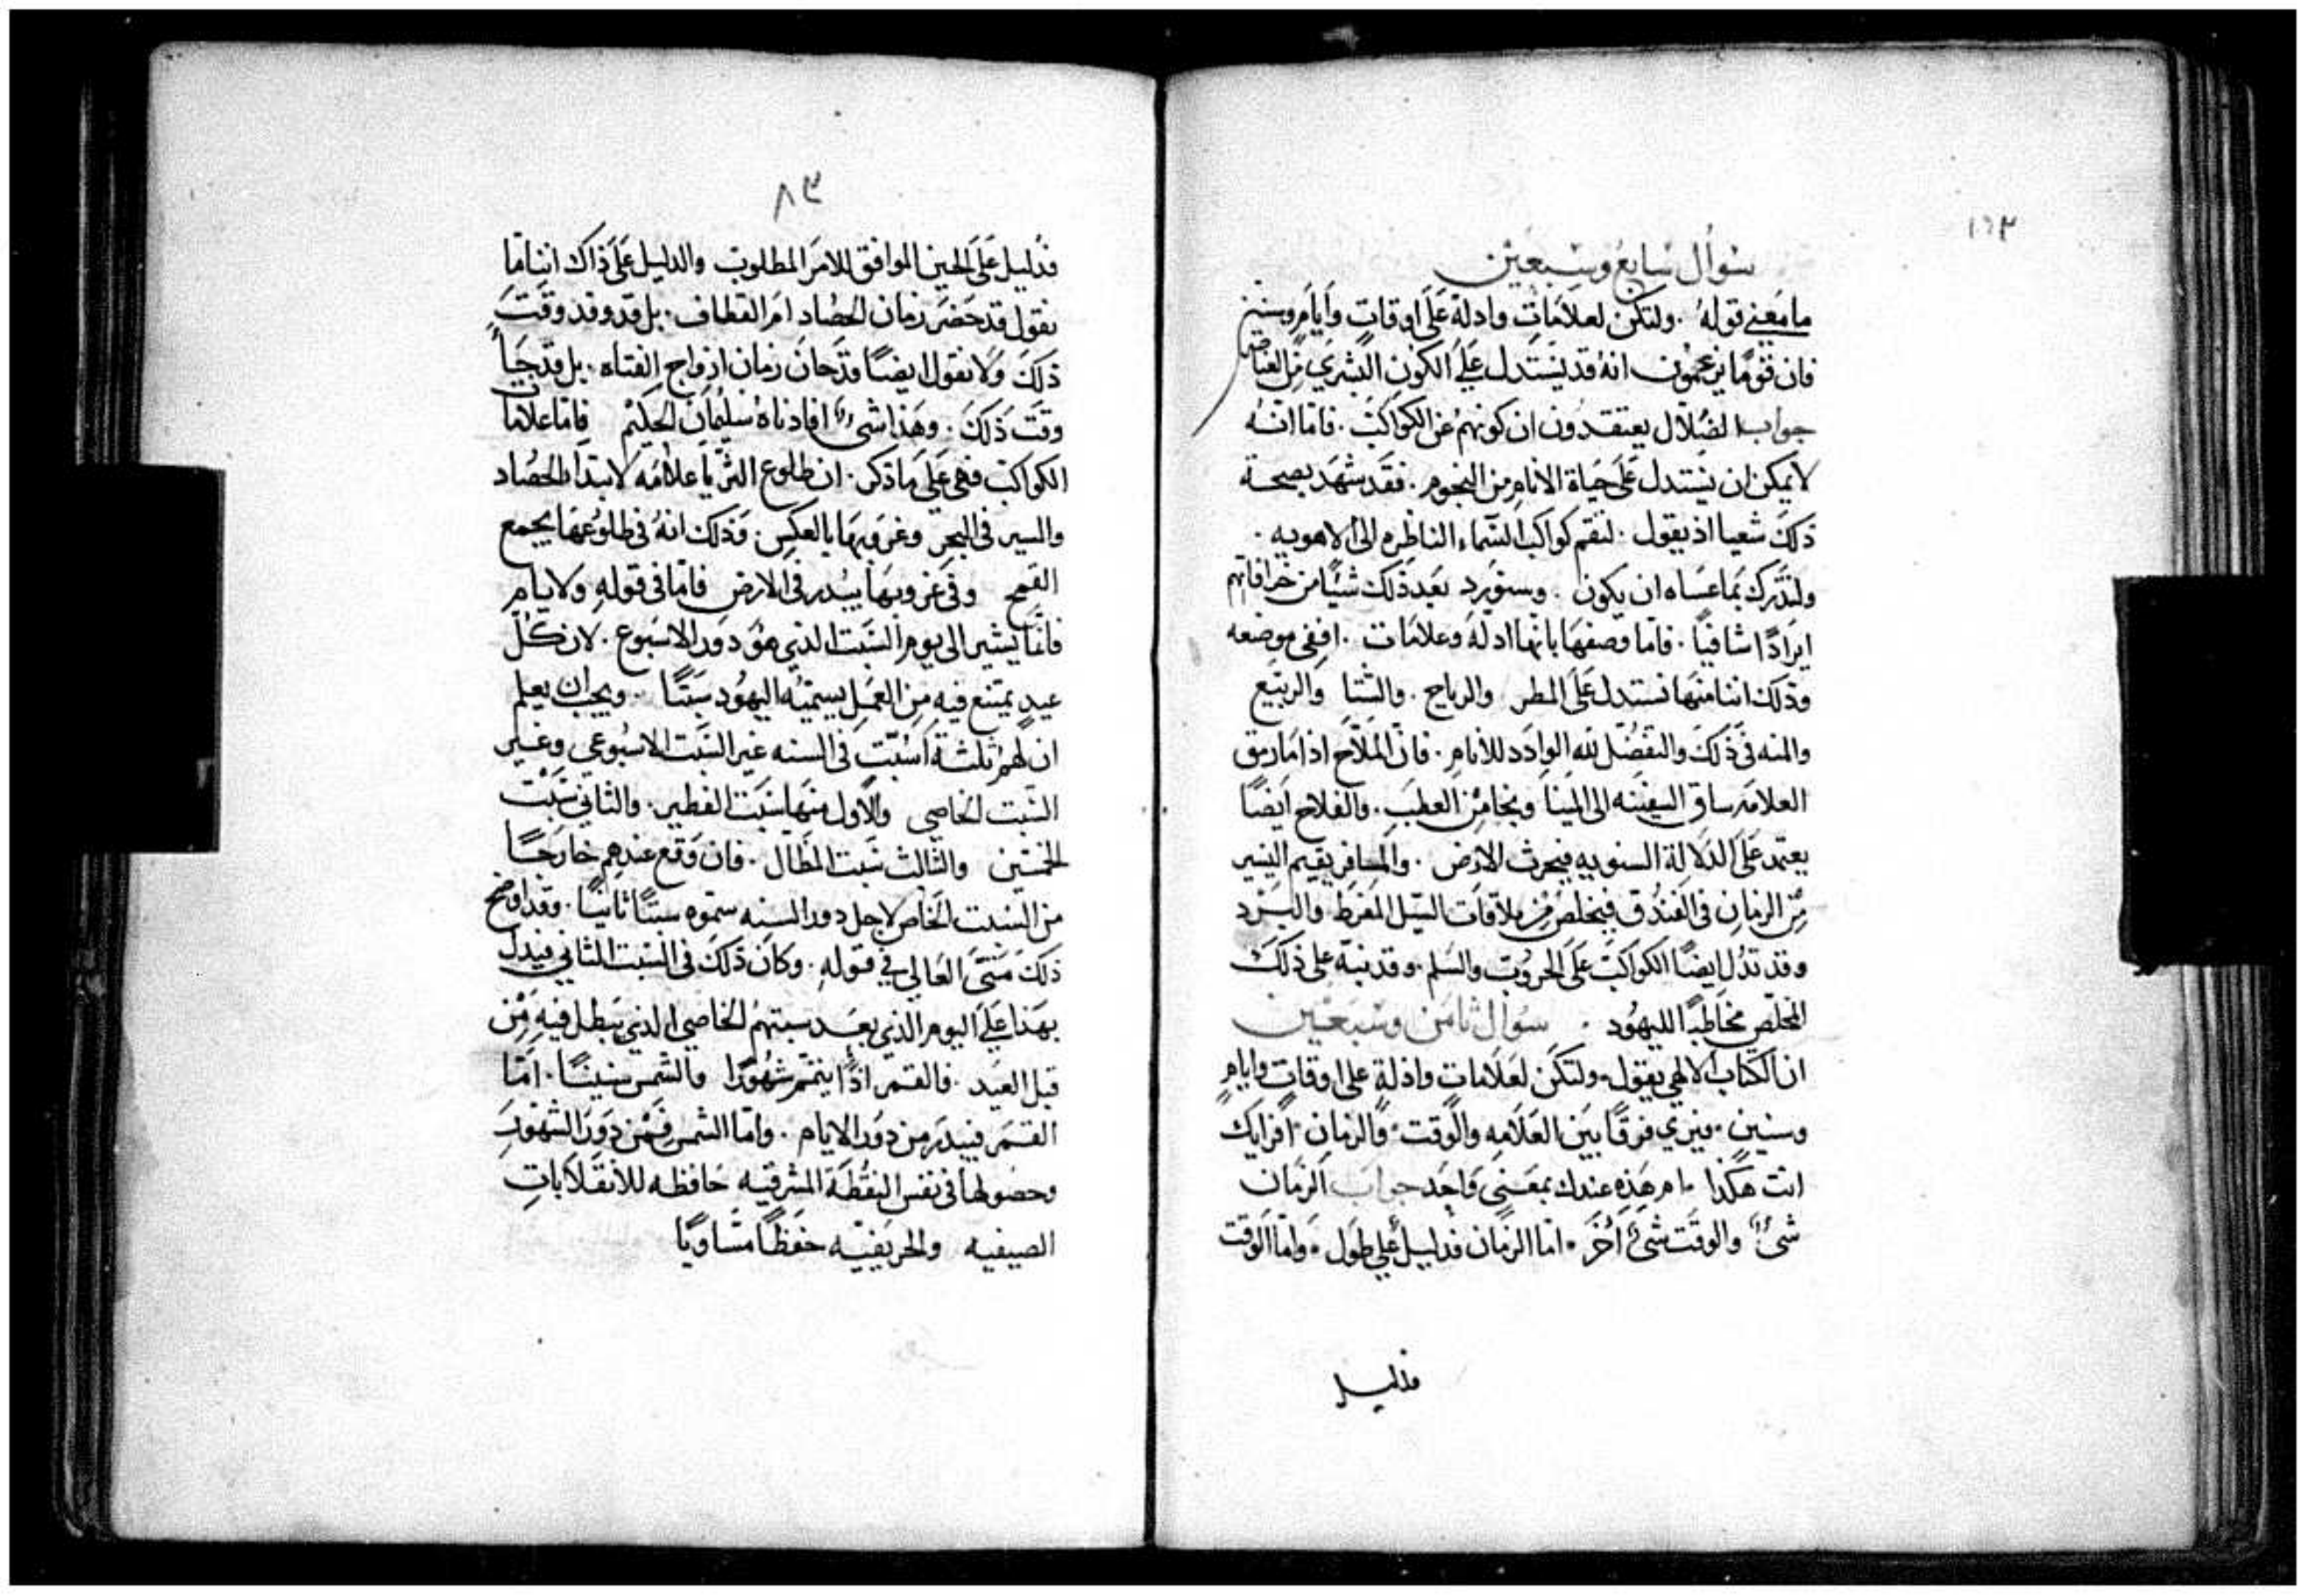 ١٦٣
سوال سابع وسبعين
ما معني قوله . ولتكن لعلامات وادلة على اوقات وايام وسنين
فان قومًا يزعمون انه قد يستدل علي الكون البشري من العناصر
جواب الضلال يعتقدون ان كونهم عن الكواكب . فاما انه
لا يمكن ان يستدل على حياة الانام من النجوم . فقد شهد بصحة
ذلك شعيا اذ يقول . لتقم كواكب السماء الناظره الى الاهويه .
ولنترك بما عساه ان يكون . وسنورد بعد ذلك شيئًا من خرافاتهم
ايرادًا شافيًا . فاما وصفها بانها ادلة وعلامات . ففي موضعه
وذلك اننا منها نستدل على المطر والرياح . والشتا والربيع
والمنه في ذلك والتفضل لله الوادد للأنام . فان الملاح اذا ما رمق
العلامه ساق السفينه الى المينا ونجا من العطب . والفلاح ايضًا
يعتمد على الدلالة السنويه فيحرث الارض . والمسافر يقيم اليسير
من الزمان في الفندق فيتخلص من ملاقات السيل المفرط والبرد
وقد تدل ايضًا الكواكب على الحروب والسلم . وقد نبه على ذلك
المخلص مخاطبًا لليهود . سوال ثامن وسبعين
ان الكتاب الالهي يقول . ولتكن لعلامات وادلة على اوقات وايام
وسنين . فيري فرقًا بين العلامه والوقت . والزمان . افرايك
انت هكذا . ام هذه عندك بمعني واحد جواب الزمان
شيء والوقت شيء اخر . اما الزمان فدليل علي طول . واما الوقت
فدليل
٨٣
فدليل على الحين الموافق للامر المطلوب والدليل على ذاك اننا ما
نقول قد حضر زمان الحصاد ام القطاف . بل قد وفد وقت
ذلك ولا نقول ايضًا قد حان زمان ازواج الفتاه . بل قد جا
وقت ذلك . وهذا شيء افادناه سليمان الحكيم فاما علامات
الكواكب فهي على ما ذكر . ان طلوع الثريا علامه لابتدا الحصاد
والسير في البحر وغروبها بالعكس . وذلك انه في طلوعها يجمع
القمح وفي غروبها يبدر في الارض فاما في قوله ولايام
فانما يشير الى يوم السبت الذي هو دور الاسبوع . لان كل
عيد يمتنع فيه من العمل يسميه اليهود سبتًا . ويجب ان يعلم
ان لهم ثلثة اسبت في السنه غير السبت الاسبوعي وغير
السبت الخاصي والاول منها سبت الفطير . والثاني سبت
الخمسين والثالث سبت المظال . فان وقع عندهم خارجًا
من السبت الخاص لاجل دور السنه سموه سبتًا ثانيًا . وقد اوضح
ذلك متى العالي في قوله . وكان ذلك في السبت الثاني فيدل
بهذا علي اليوم الذي بعد سبتهم الخاصي الذي يبطل فيه من
قبل العيد . فالقمر اذًا يتمم شهورًا والشمس سنينًا . اما
القمر فيبدر من دور الايام . واما الشمس فمن دور الشهور
وحصولها في نفس النقطة المشرقيه حافظه للانقلابات
الصيفيه والخريفيه حفظًا مساويًا